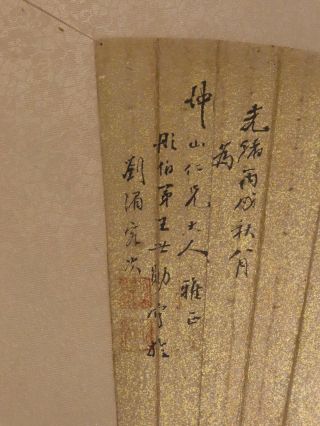 光緒丙戌秋八月
為
坤山仁兄大人雅正
彤伯弟王世勛寫於
劉浦客次